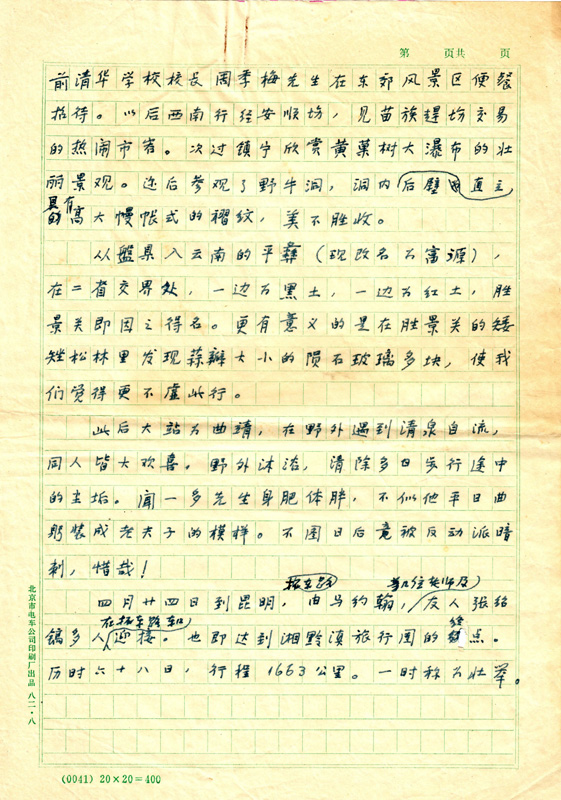 第 页共 页
前清华学校校长周季梅先生在东郊风景区便餐
招待。以后西南行经安顺坊，见苗族趕场交易
的热闹市容。次过镇宁欣赏黄菓树大瀑布的壮
丽景观。还后参观了野牛洞，洞内后壁直立
具有
的高大幔帐式的褶纹，美不胜收。
从盤县入云南的平彝（现改名为富源），
在二省交界处，一边为黑土，一边为红土，胜
景关即因之得名。更有意义的是在胜景关的矮
矬松林里发现蒜瓣大小的陨石玻璃多块，使我
们觉得更不虚此行。
此后大站为曲靖，在野外遇到清泉自流，
同人皆大欢喜。野外沐浴，清除多日步行途中
的尘垢。闻一多先生身肥体胖，不似他平日曲
躬装成老夫子的模样。不图日后竟被反动派暗
刺，惜哉！
四月廿四日到昆明，由马约翰，友人张绍
镐多人迎接。也即达到湘黔滇旅行团的终点。
历时六十八日，行程1663公里。一时称为壮举。
北京市电车公司印刷厂出品 八二·八
(0041) 20×20=400